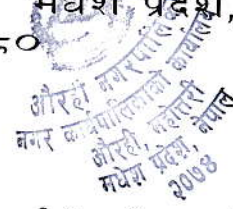 मधेश प्रदेश,
८०
औरही नगरपालिका
नगर कार्यपालिकाको कार्यालय
औरही, महोत्तरी
मधेश प्रदेश, नेपाल
२०७४